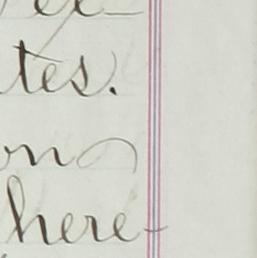 tes.
on
here-